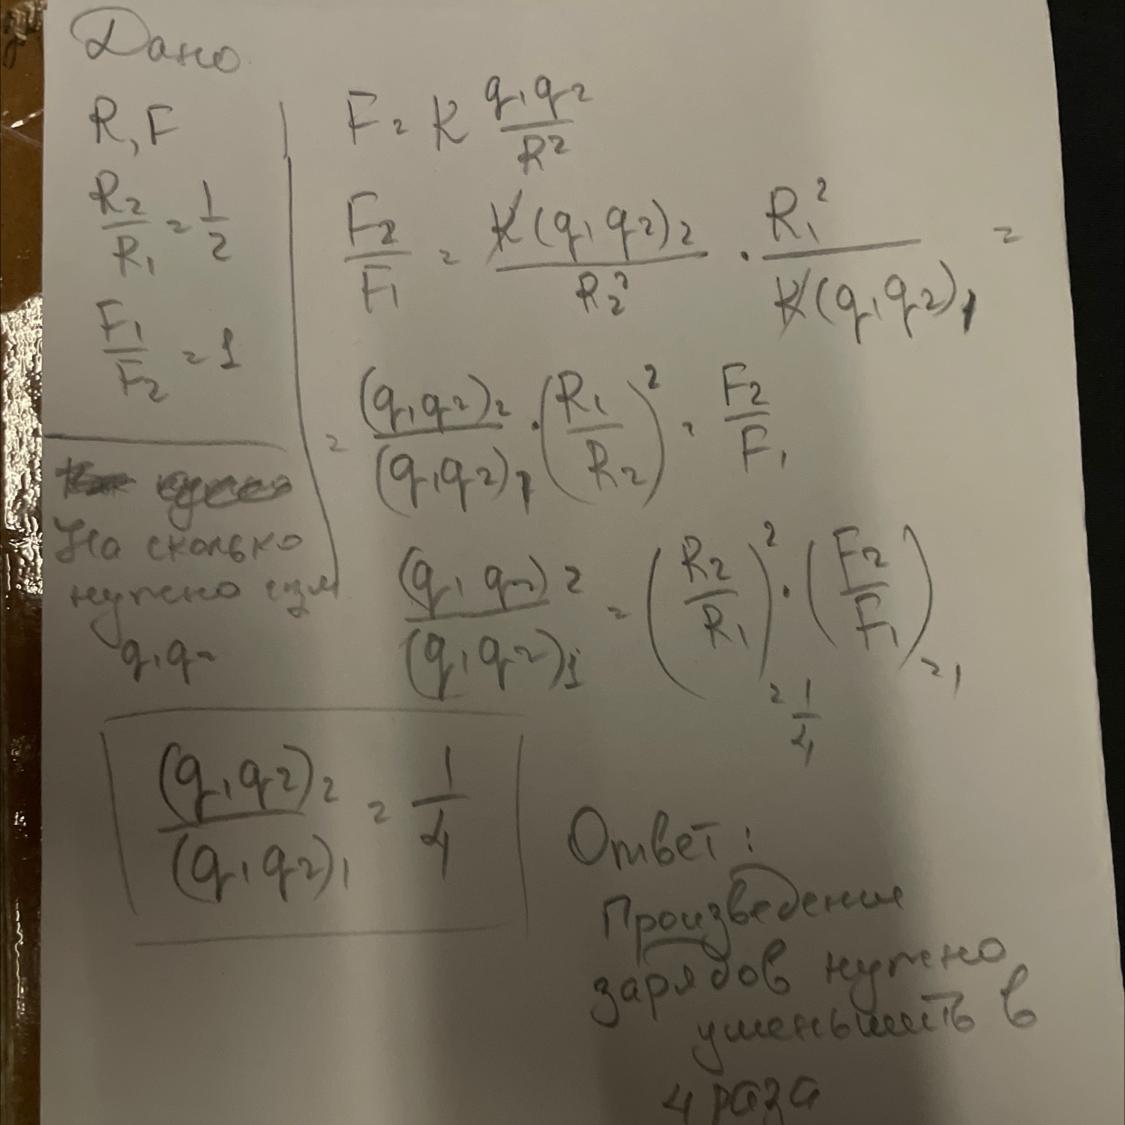 Дано
R, F
R2/R1 = 1/2
F1/F2 = 1
На сколько
нужно изм
q1q2
F = K q1q2/R²
F2/F1 = K(q1q2)2/R2² · R1²/K(q1q2)1 =
= (q1q2)2/(q1q2)1 · (R1/R2)² = F2/F1
(q1q2)2/(q1q2)1 = (R2/R1)² · (F2/F1) = 1
= 1/4
(q1q2)2/(q1q2)1 = 1/4
Ответ:
Произведение
зарядов нужно
уменьшить в
4 раза